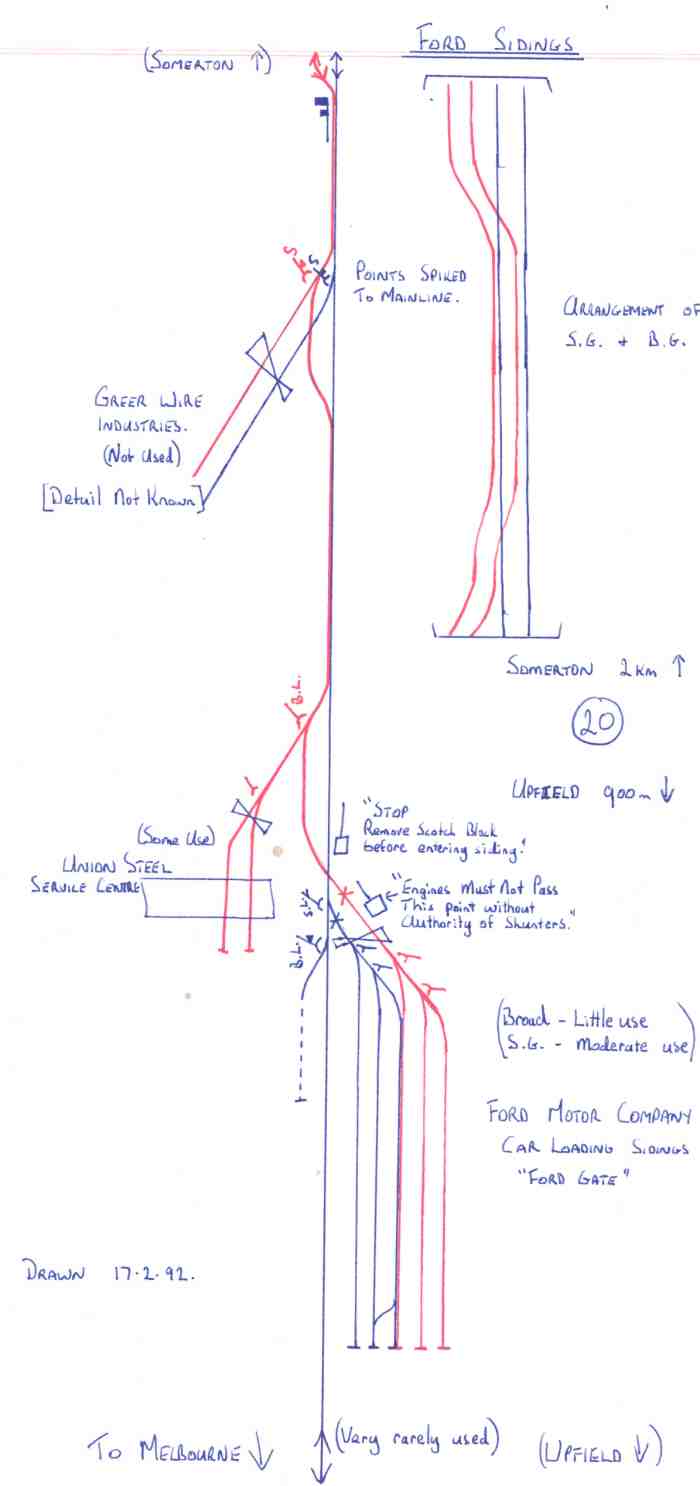 FORD SIDINGS
(SOMERTON ↑)
S.L.
S.L.
POINTS SPIKED
TO MAINLINE.
ARRANGEMENT OF
S.G. + B.G.
GREER WIRE
INDUSTRIES.
(Not Used)
[Detail Not Known]
SOMERTON 2KM ↑
20
B.L.
UPFIELD 900m ↓
"STOP
Remove Scotch Block
before entering siding."
(Some Use)
UNION STEEL
SERVICE CENTRE
"Engines Must Not Pass
This point without
Authority of Shunters."
S.L.
B.L.
(Broad - Little use
S.G. - Moderate use)
FORD MOTOR COMPANY
CAR LOADING SIDINGS
"FORD GATE"
DRAWN 17.2.92.
TO MELBOURNE ↓
(Vary rarely used)
(UPFIELD ↓)